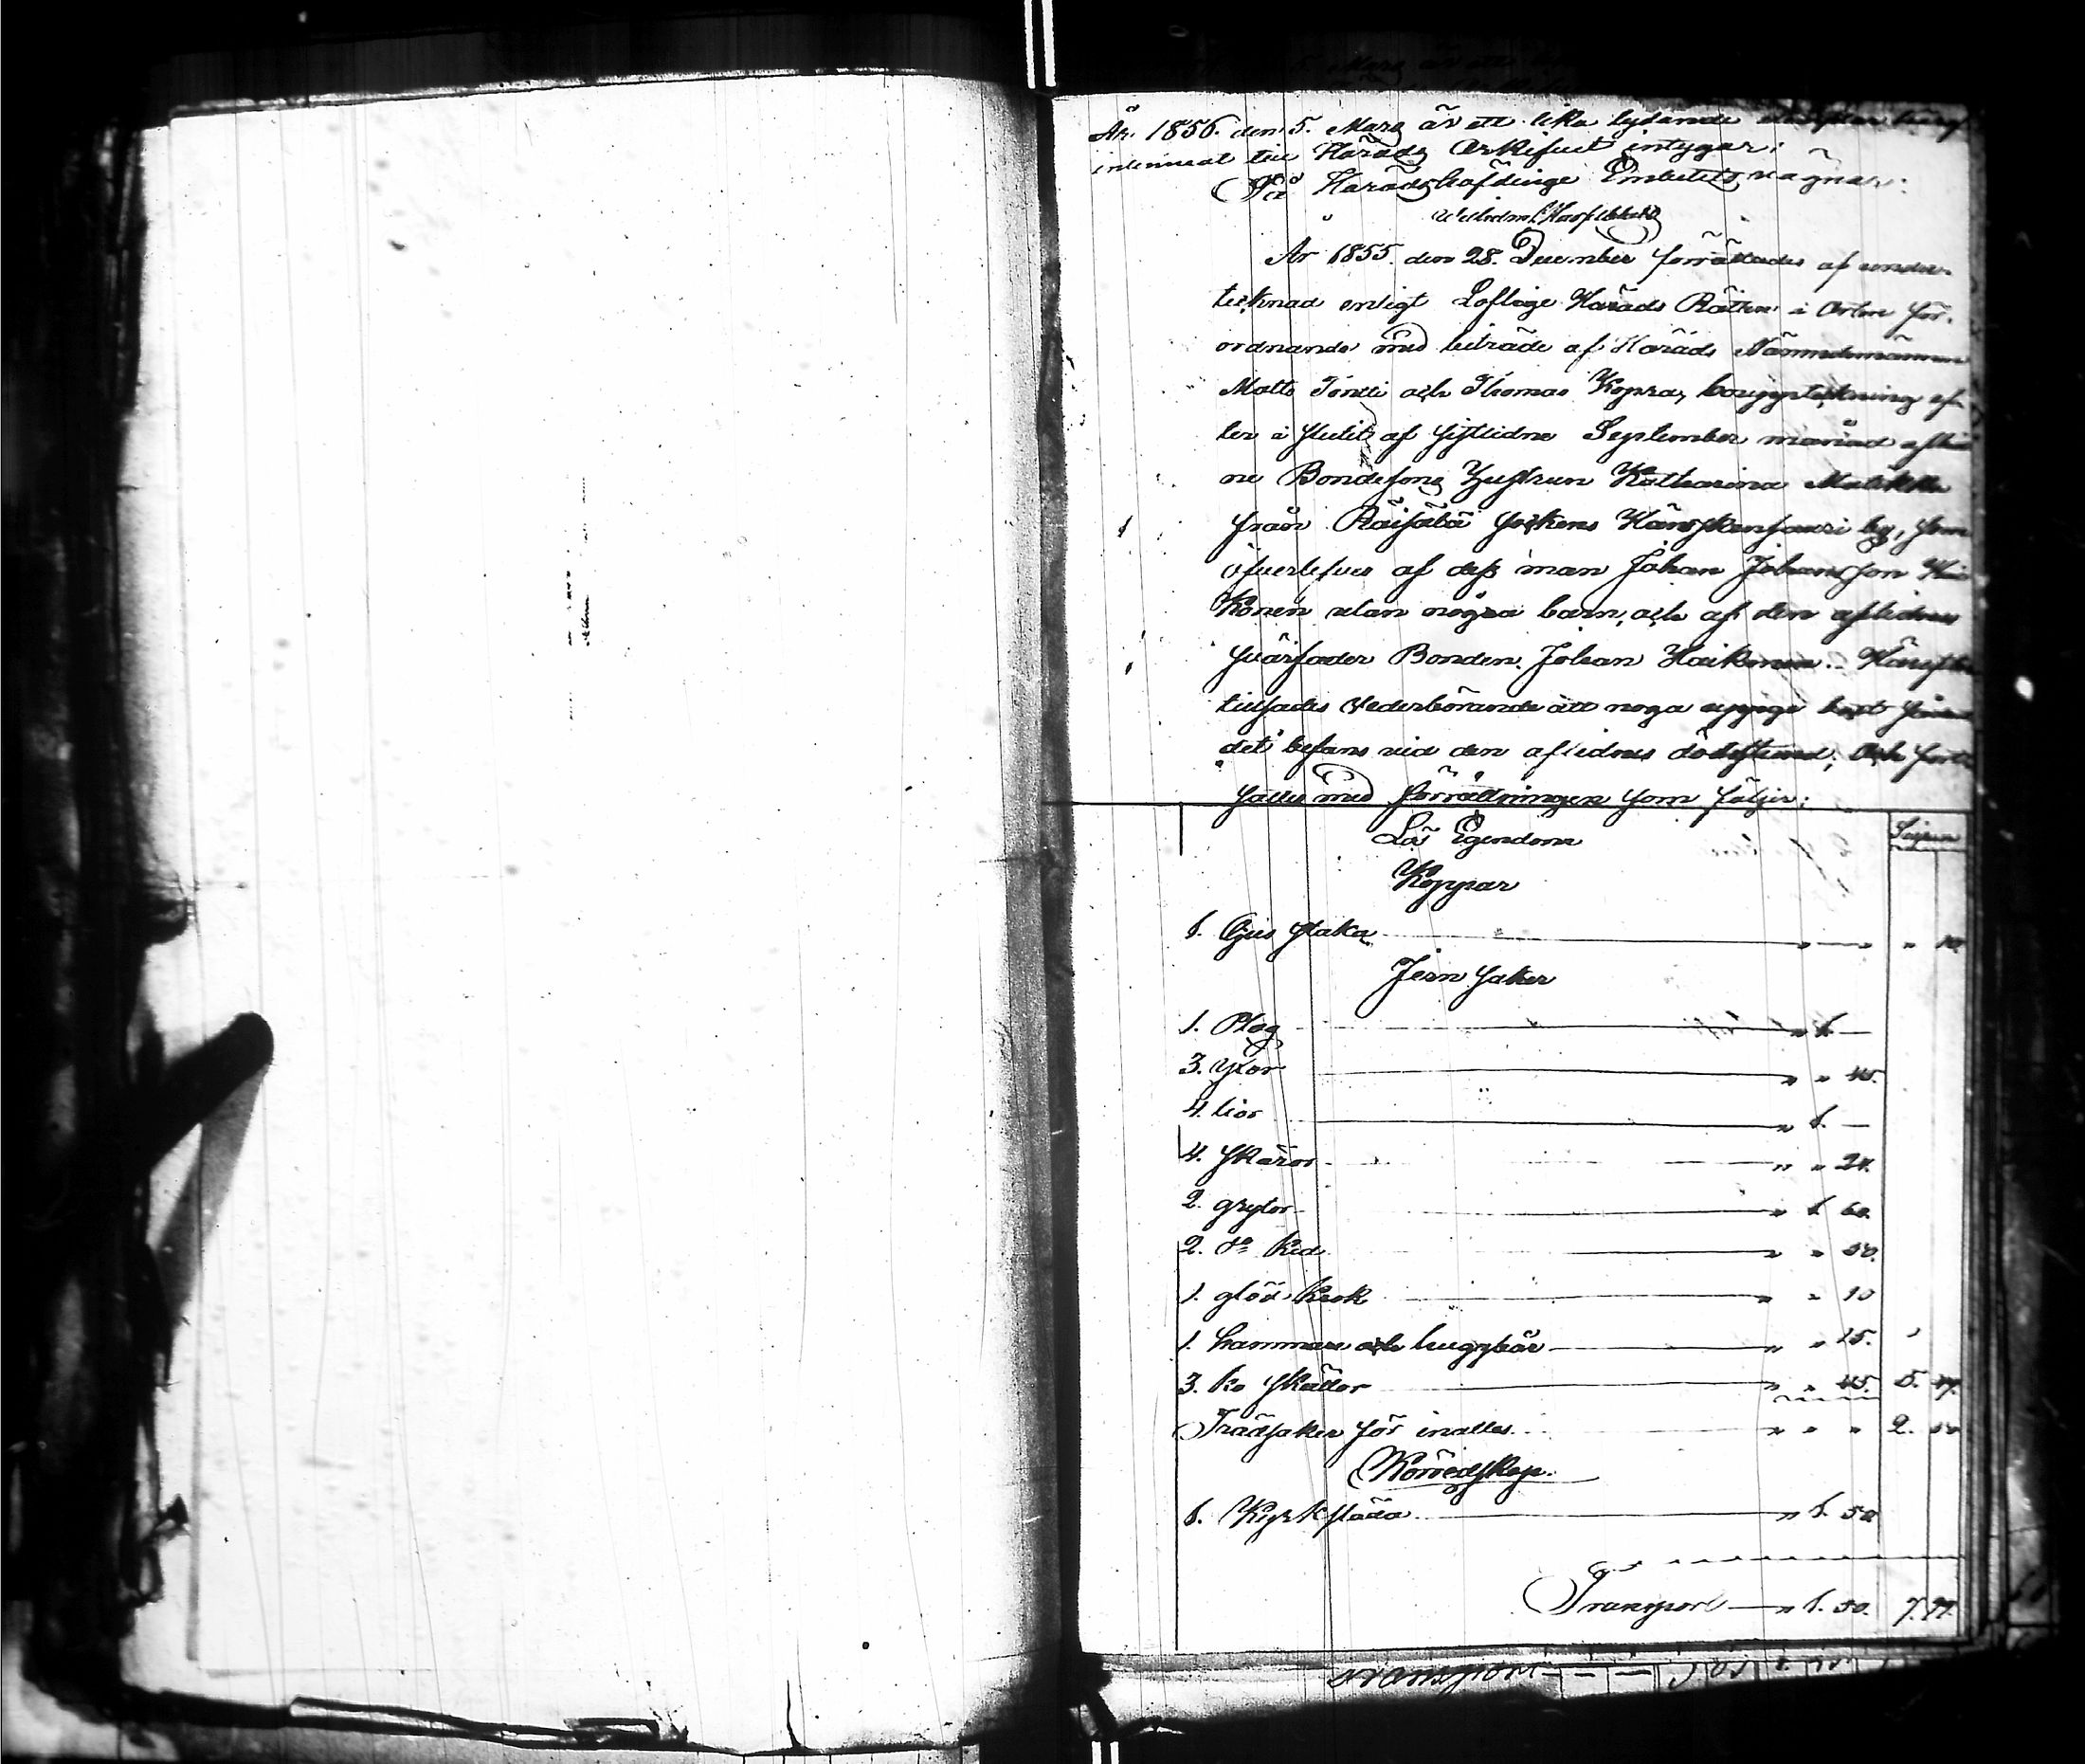 År 1856. den 5. Mars är ett lika lydande
inlemnat till Härads Arkifvet intygar:
På Häradshöfdinge Embetets vägnar:
År 1855. den 28. December förrättades af under-
tecknad enligt Loflige Härads Rätten i Orten för-
ordnande med biträde af Härads Nämndemännen
Matts och Thomas Kopra, bouppteckning ef-
ter i slutet af sistlidne September månad aflid
ne Bondesons Hustrun Katharina
från Räisälä sockens by, som
öfverlefves af dess man Johan Johansson Hai
konen utan några barn, och af den aflidnes
svärfader Bonden Johan Haikonen.
tillsades Vederbörande att noga uppge boet sådant
det befans vid den aflidnes dödsstund, Och fort
sattes med förrättningen som följer:
Lös Egendom
Koppar
1. ljus staka " — " " 10.
Jern saker
1. Plog " 1. —
3. yxor " " 45.
4. liar " 1. —
4. skäror " " 24.
2. grytor " 1 60.
2. do " " 50.
1. glöd krok " " 10
1. hammare och " " 15.
3. ko skällor " " 45. 5.
Trädsaker för inalles " " " 2. 50
Körredskap.
1. Kyrksläda " 1. 50
Transport — " 1. 50. 7. 99.
Transport